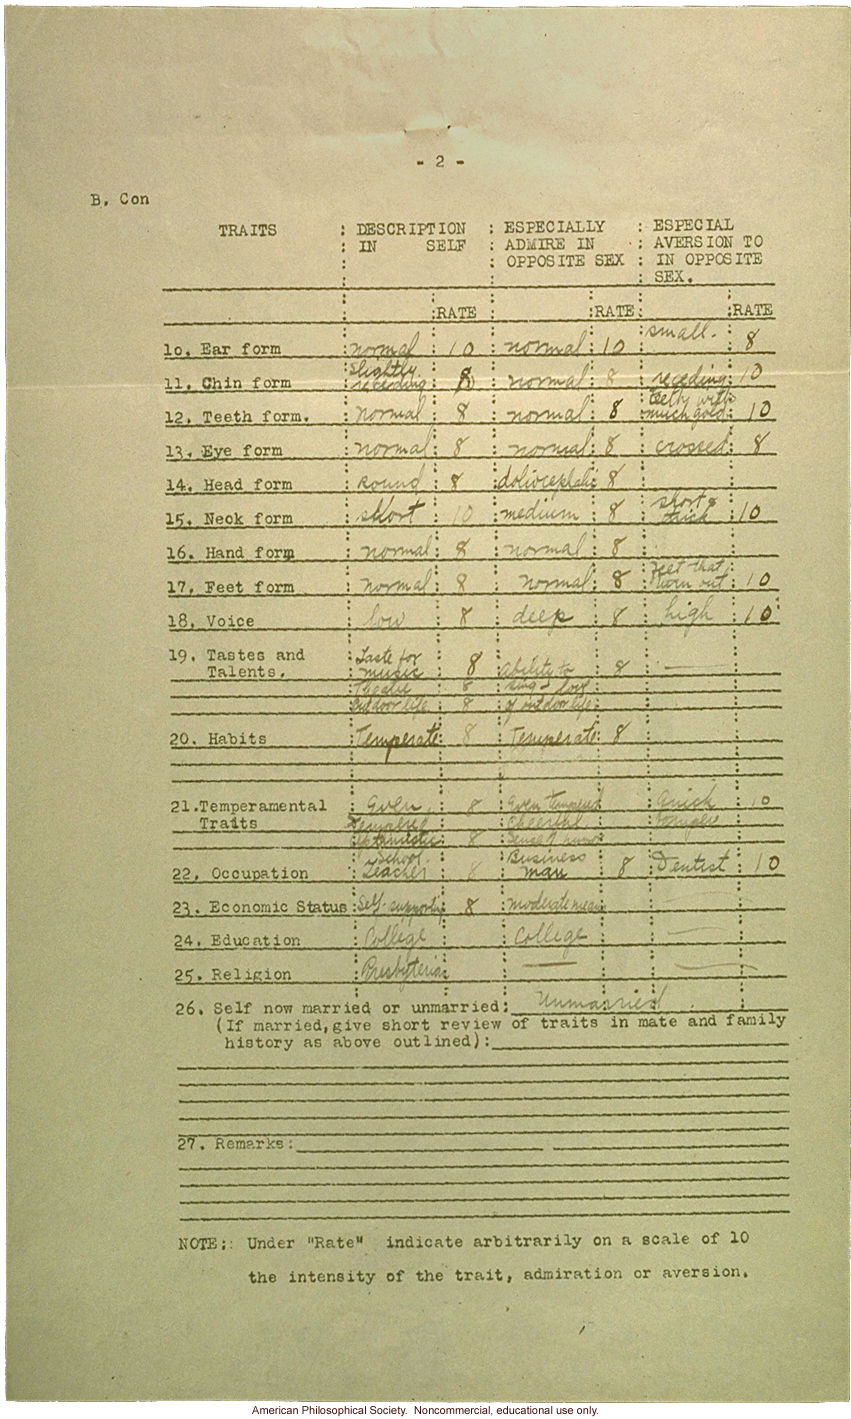 - 2 -
B. Con
TRAITS : DESCRIPTION : ESPECIALLY : ESPECIAL
: IN SELF : ADMIRE IN : AVERSION TO
: OPPOSITE SEX : IN OPPOSITE
: SEX.
:RATE :RATE: :RATE
10. Ear form : normal : 10 : normal : 10 : small. : 8
11. Chin form : slightly receding : 8 : normal : 8 : receding : 10
12. Teeth form. : normal : 8 : normal : 8 : teeth with much gold : 10
13. Eye form : normal : 8 : normal : 8 : crossed : 8
14. Head form : round : 8 : : 8
15. Neck form : short : 10 : medium : 8 : short & thick : 10
16. Hand form : normal : 8 : normal : 8 :
17. Feet form : normal : 8 : normal : 8 : Feet that turn out : 10
18. Voice : low : 8 : deep : 8 : high : 10
19. Tastes and : Taste for
Talents. : music : 8 : ability to : 8 : —
Theatre : 8 : sing - love
outdoor life : 8 : of outdoor life :
20. Habits : Temperate : 8 : Temperate : 8 :
21.Temperamental : Even : 8 : Even tempered : : Quick : 10
Traits : Tempered : Cheerful :
Optimistic : 8 : Sense of humor
: School : Business
22. Occupation : Teacher : 8 : man : 8 : Dentist : 10
23. Economic Status : Self-supporting : 8 : moderate means
24. Education : College : College : —
25. Religion : Presbyterian : — : —
26. Self now married or unmarried: Unmarried
(If married,give short review of traits in mate and family
history as above outlined):
27. Remarks:
NOTE;: Under "Rate" indicate arbitrarily on a scale of 10
the intensity of the trait, admiration or aversion.
American Philosophical Society. Noncommercial, educational use only.